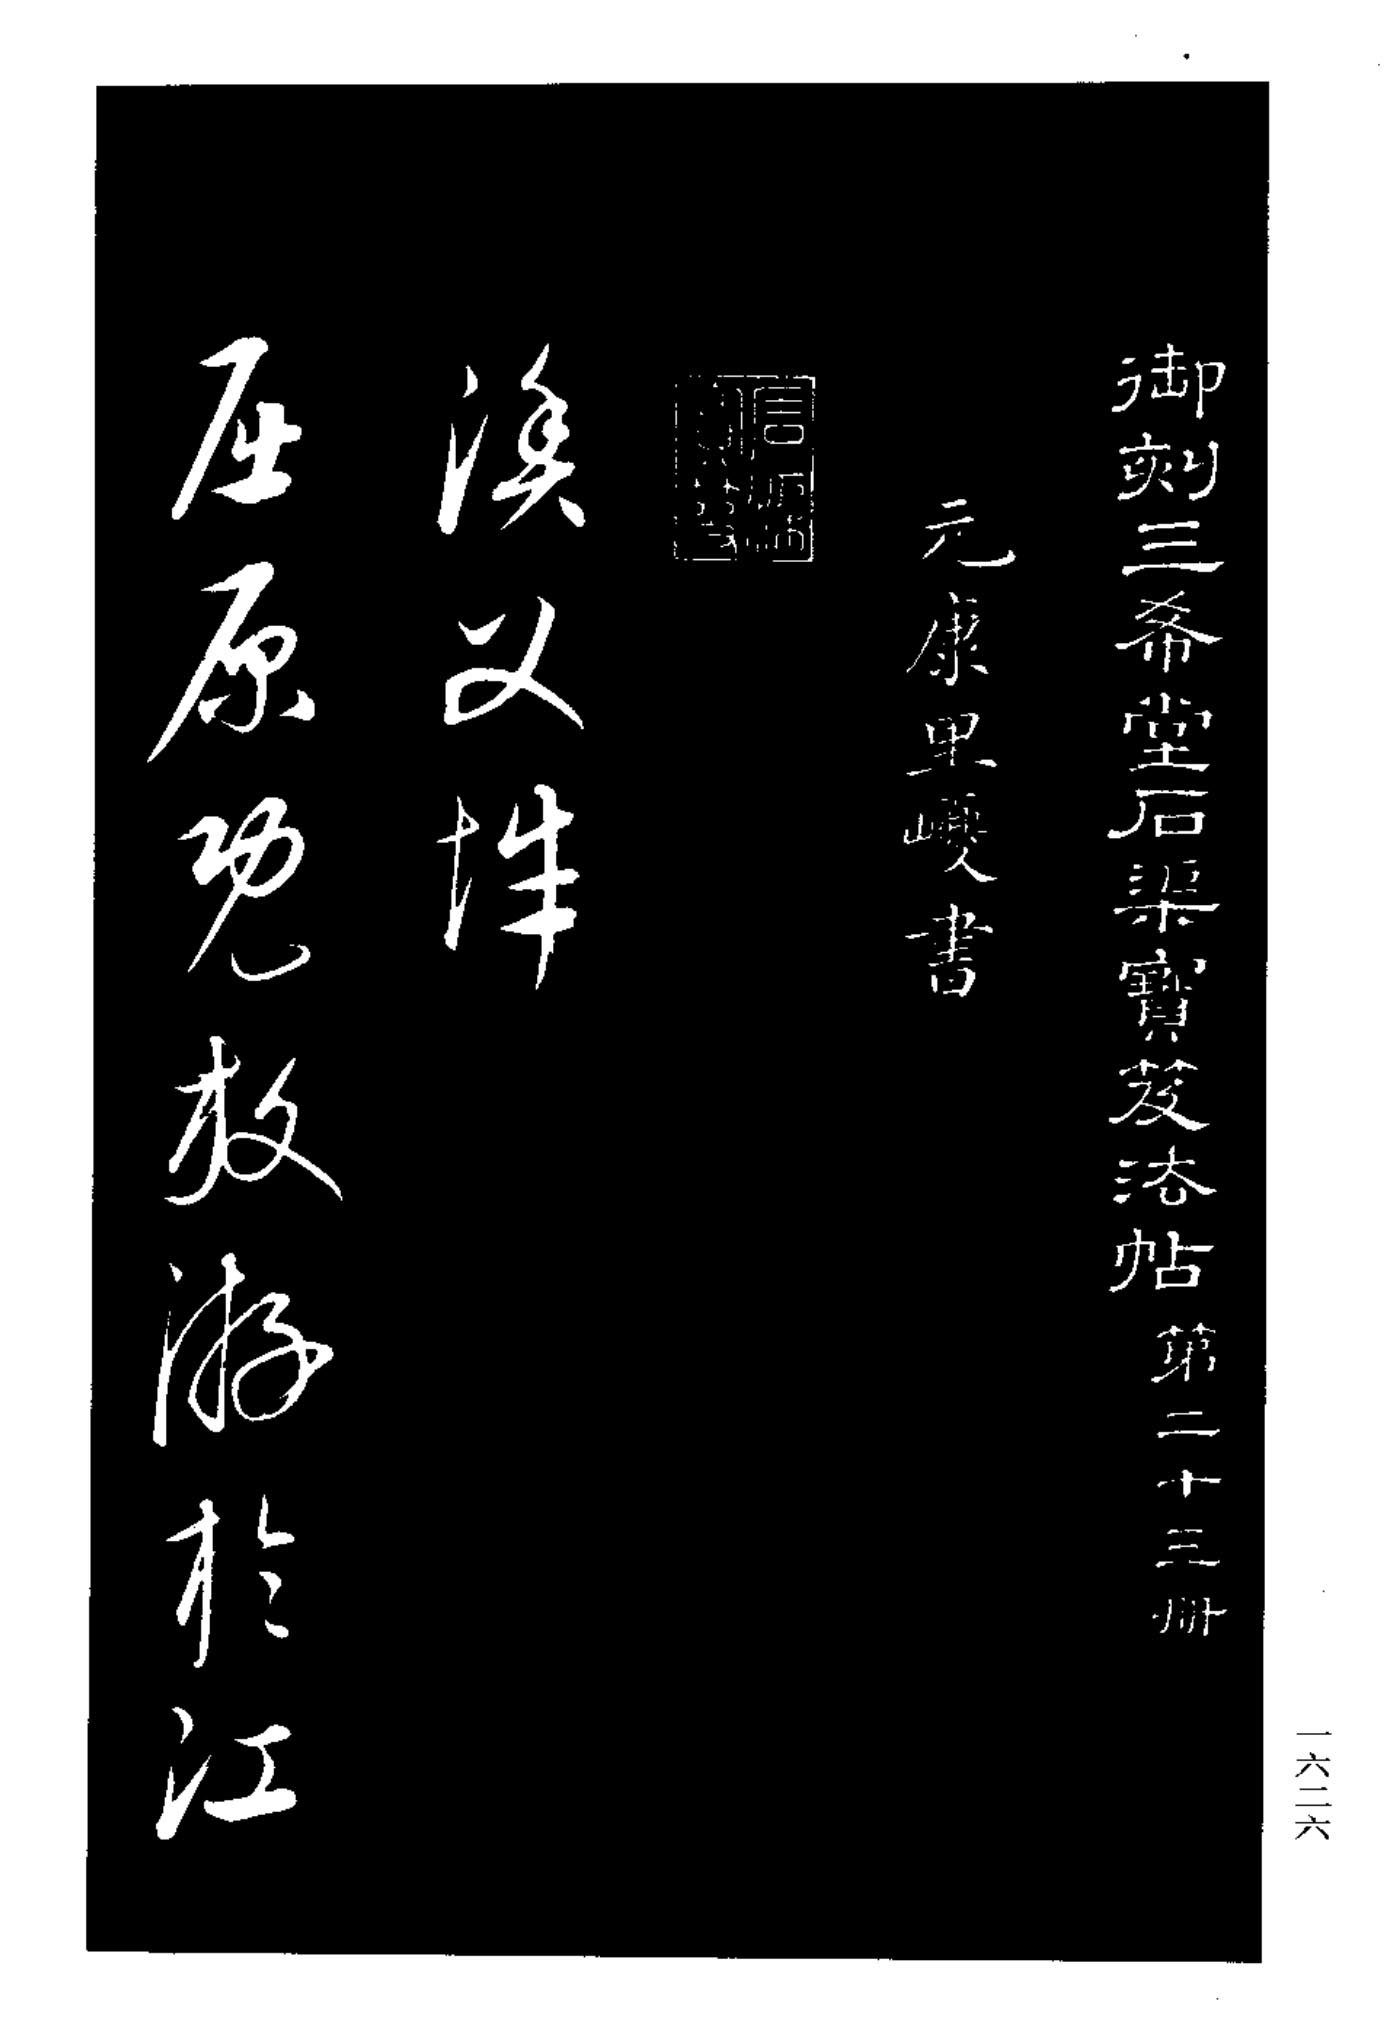 御刻三希堂石渠寶笈法帖 第二十三冊
元康里巎書
漁父誄
屈原既放游於江
一六二六